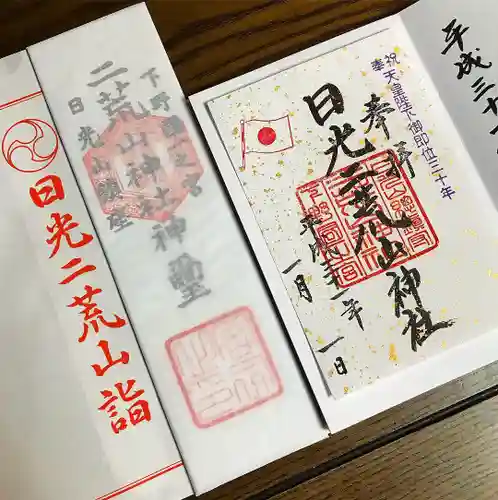 日光二荒山詣
下野國一之宮
二荒山神社神璽
日光山鎮座
祝天皇陛下御即位三十年
奉
奉拝
日光二荒山神社
平成三十一年
一月一日
平成三十